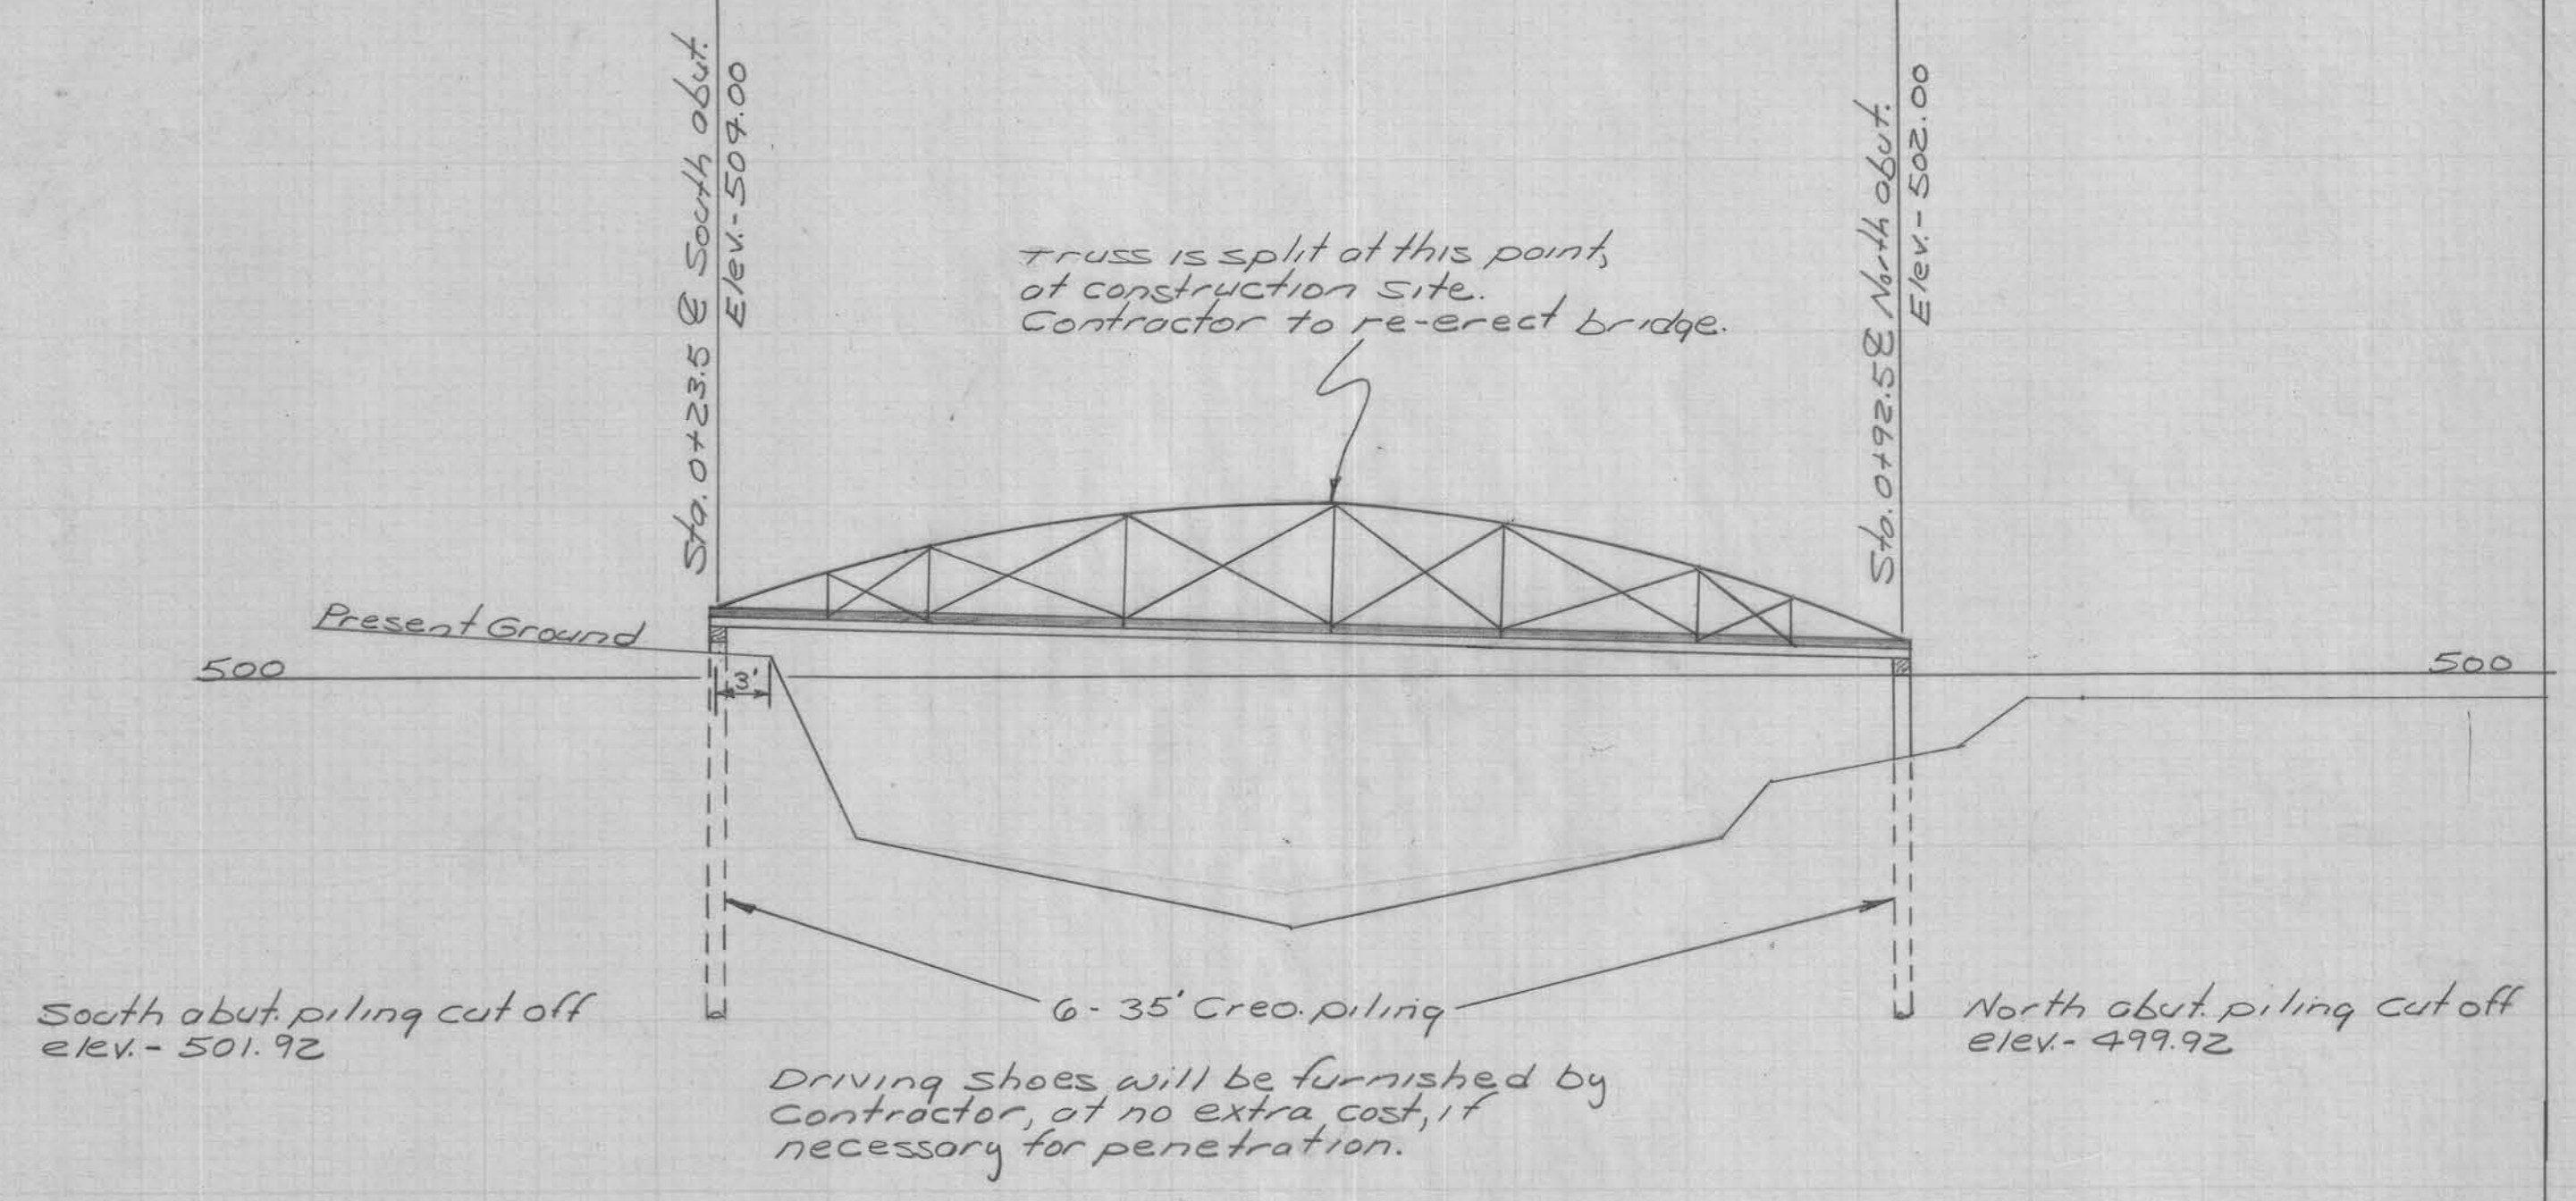 Sta. 0+23.5 ℄ South abut.
Elev.- 504.00
Sta. 0+92.5 ℄ North abut.
Elev.- 502.00
Truss is split at this point,
at construction site.
Contractor to re-erect bridge.
Present Ground
500
500
3'
6 - 35' Creo. piling
South abut. piling cut off
elev. - 501.92
North abut. piling cut off
elev.- 499.92
Driving shoes will be furnished by
Contractor, at no extra cost, if
necessary for penetration.